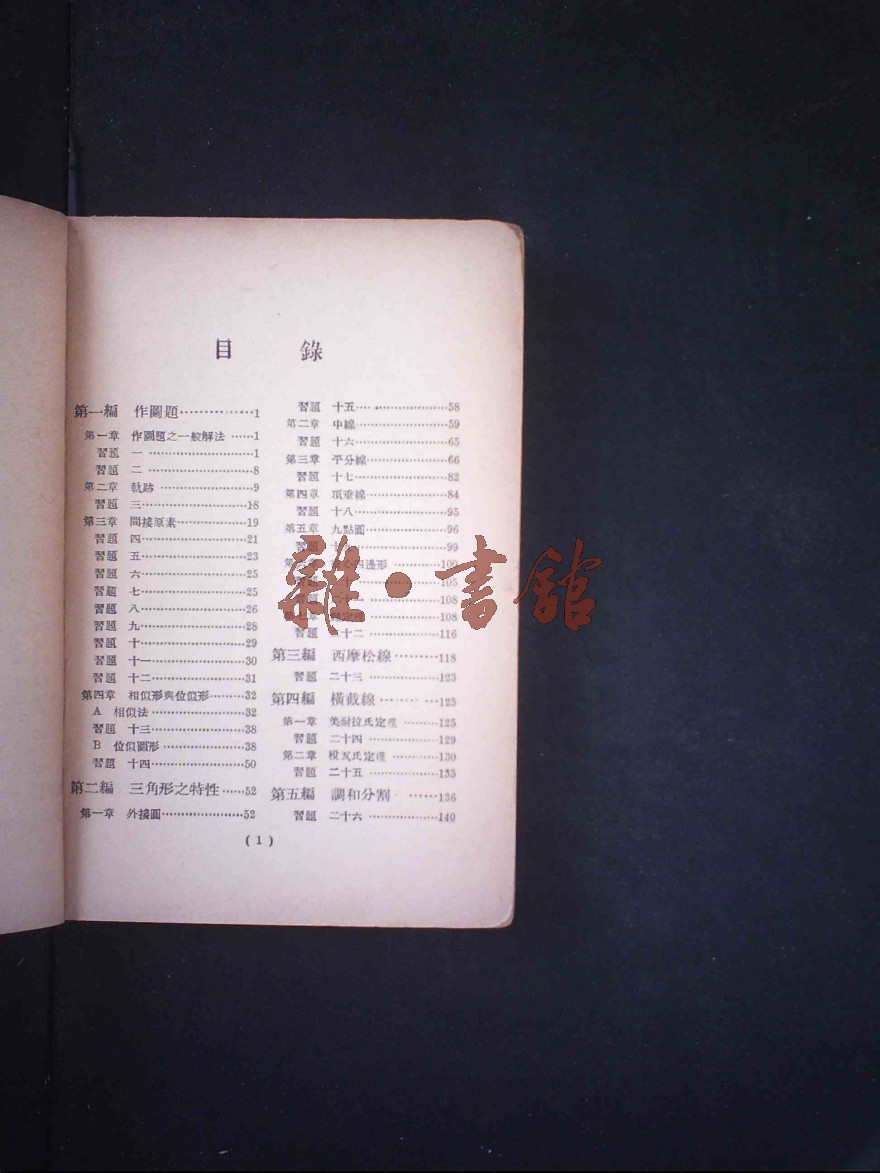 目 錄
第一編 作圖題……………1
第一章 作圖題之一般解法……1
習題 一……………1
習題 二……………8
第二章 軌跡……………9
習題 三……………18
第三章 間接原素……………19
習題 四……………21
習題 五……………23
習題 六……………25
習題 七……………25
習題 八……………26
習題 九……………28
習題 十……………29
習題 十一……………30
習題 十二……………31
第四章 相似形與位似形………32
A 相似法……………32
習題 十三……………38
B 位似圖形……………38
習題 十四……………50
第二編 三角形之特性……52
第一章 外接圓……………52
習題 十五……………58
第二章 中線……………59
習題 十六……………65
第三章 平分線……………66
習題 十七……………82
第四章 頂垂線……………84
習題 十八……………95
第五章 九點圓……………96
習題……………99
四邊形………100
105
108
108
習題 二十二……………116
第三編 西摩松線………118
習題 二十三……………123
第四編 橫截線………125
第一章 美耐拉氏定理………125
習題 二十四……………129
第二章 梭瓦氏定理………130
習題 二十五……………135
第五編 調和分割……136
習題 二十六……………140
(1)
雜·書館